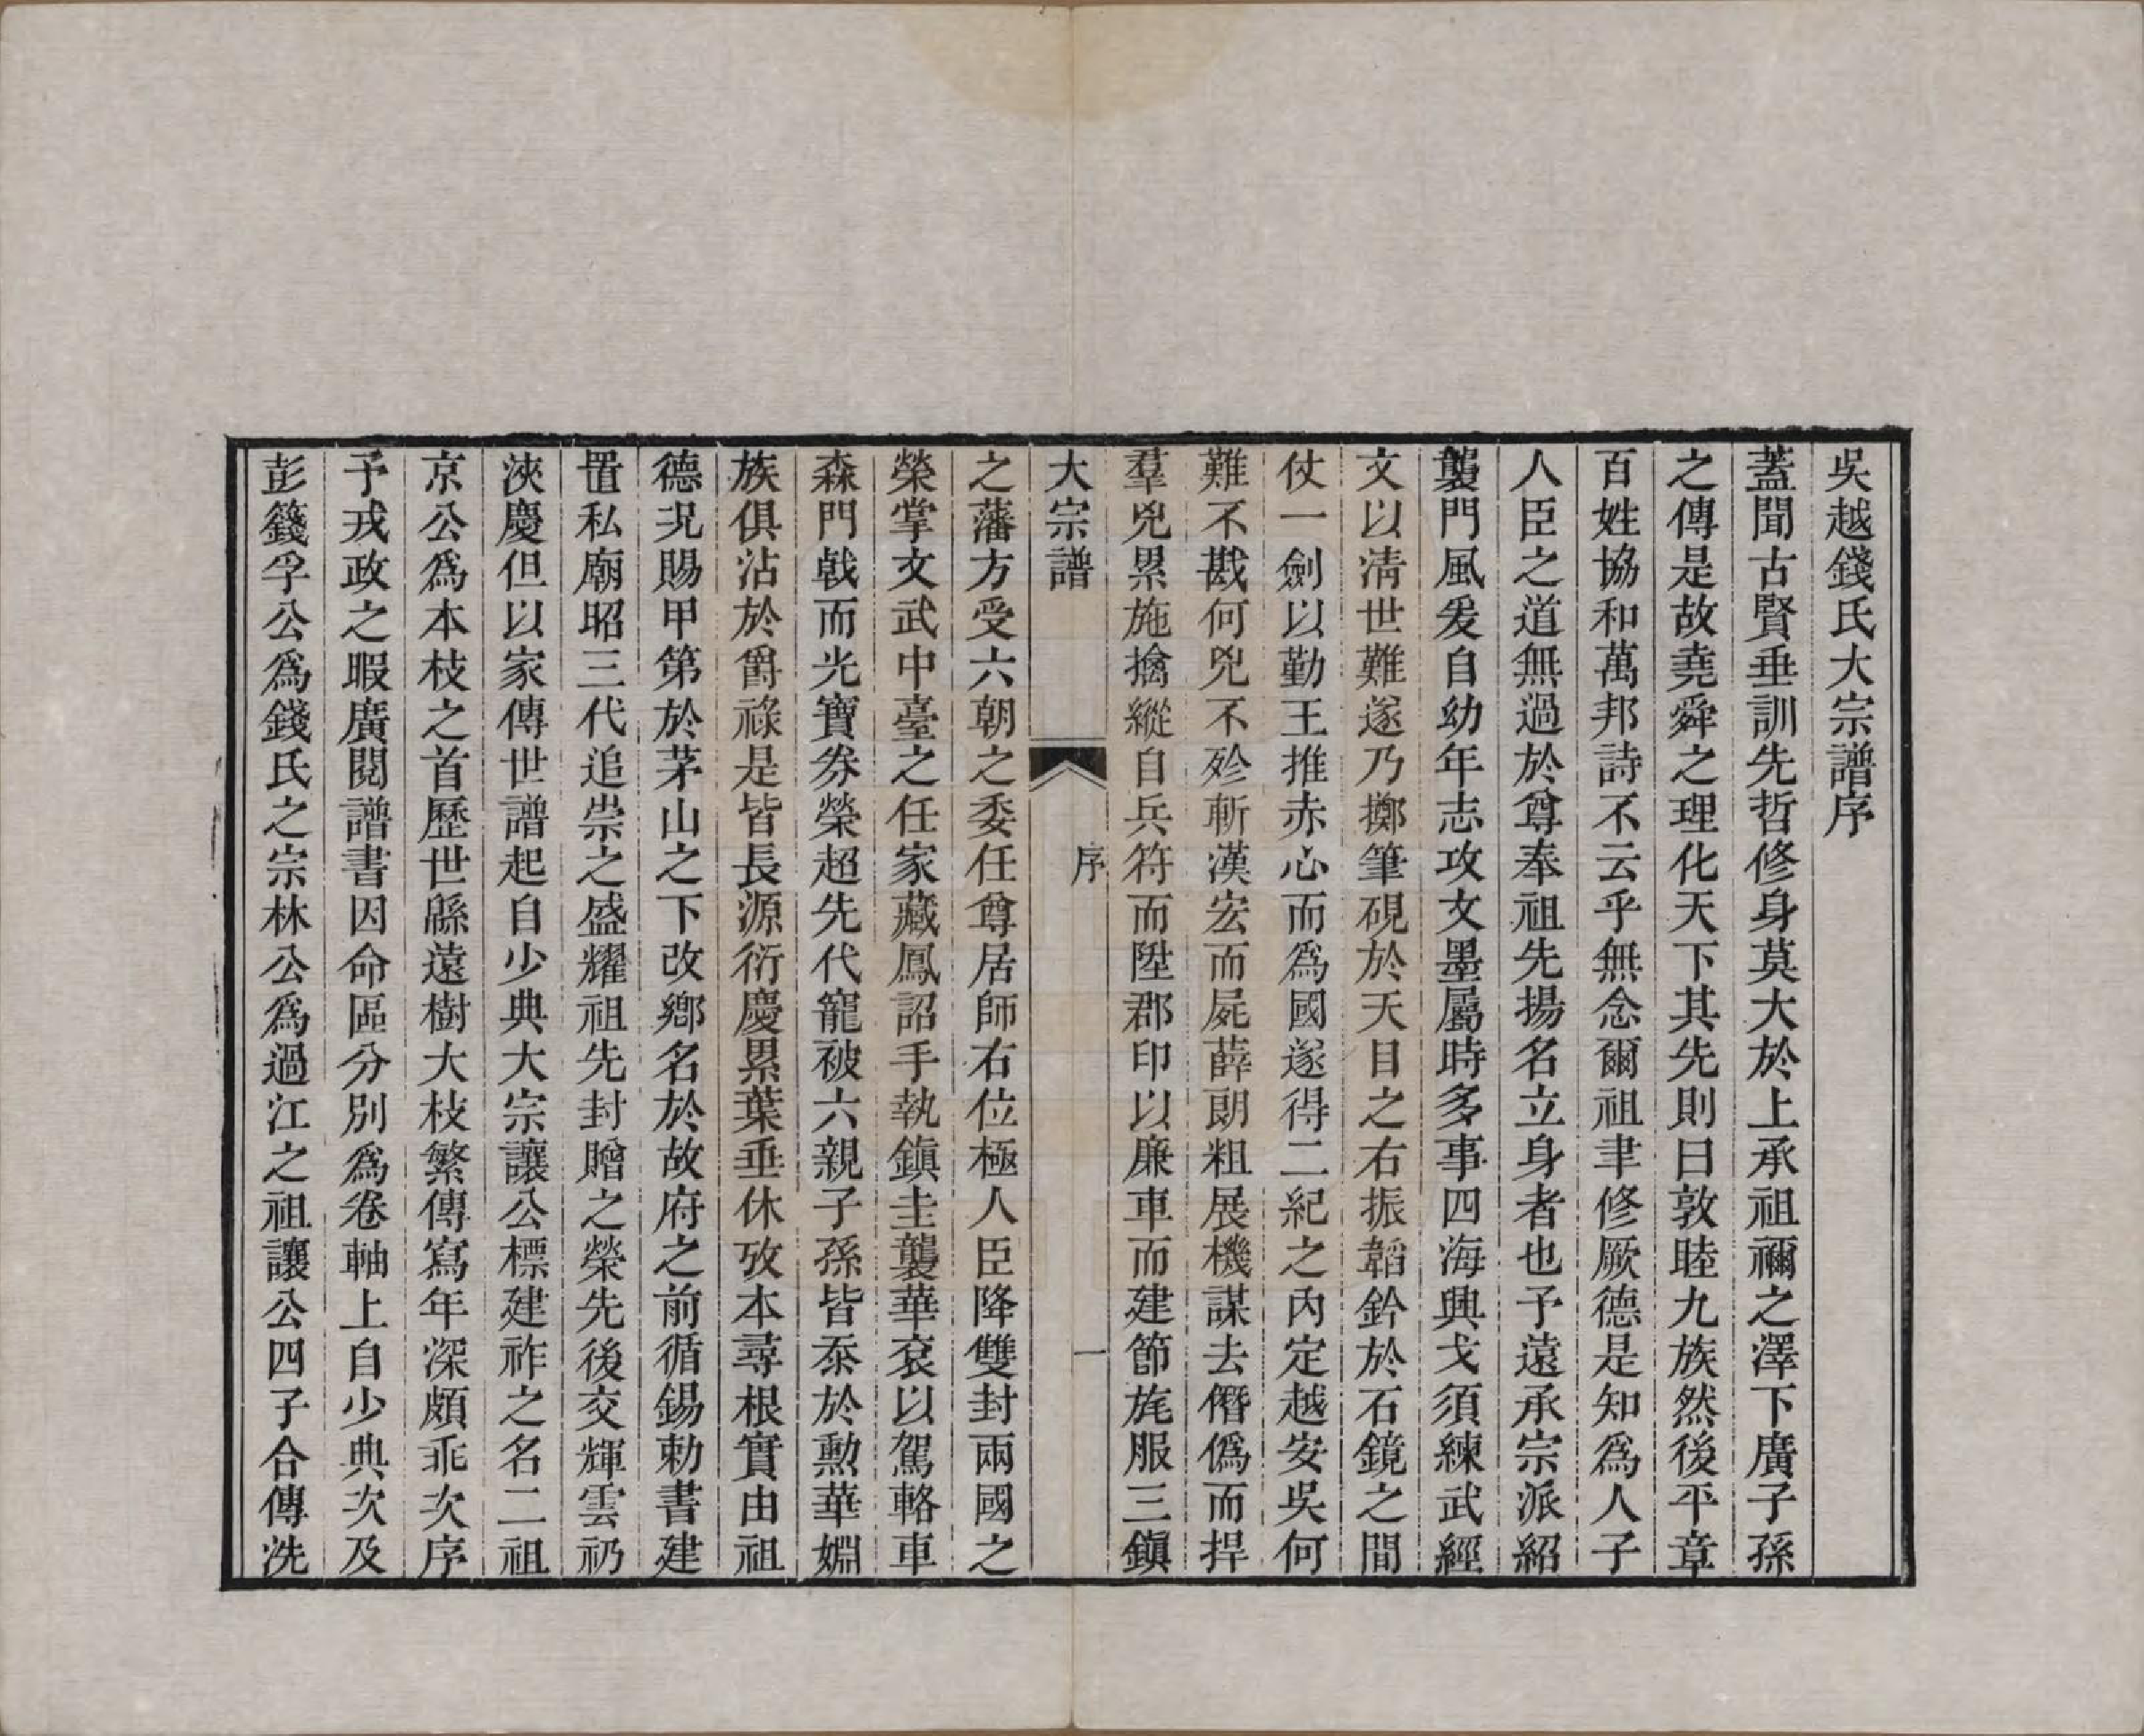 吳越錢氏大宗譜序
蓋聞古賢垂訓先哲修身莫大於上承祖禰之澤下廣子孫
之傳是故堯舜之理化天下其先則曰敦睦九族然後平章
百姓協和萬邦詩不云乎無念爾祖聿修厥德是知為人子
人臣之道無過於尊奉祖先揚名立身者也予遠承宗派紹
襲門風爰自幼年志攻文墨屬時多事四海興戈須練武經
文以淸世難遂乃擲筆硯於天目之右振韜鈐於石鏡之間
仗一劍以勤王推赤心而爲國遂得二紀之內定越安吳何
難不戡何兇不殄斬漢宏而屍薛朗粗展機謀去僭僞而捍
羣兇累施擒縱自兵符而陞郡印以廉車而建節旄服三鎭
大宗譜 序 一
之藩方受六朝之委任尊居師右位極人臣降雙封兩國之
榮掌文武中臺之任家藏鳳詔手執鎭圭襲華袞以駕輅車
森門戟而光寶券榮超先代寵被六親子孫皆忝於勲華姻
族俱沾於爵祿是皆長源衍慶累葉垂休攷本尋根實由祖
德況賜甲第於茅山之下改鄉名於故府之前循錫勅書建
置私廟昭三代追崇之盛耀祖先封贈之榮先後交輝雲礽
浹慶但以家傳世譜起自少典大宗讓公標建祚之名二祖
京公爲本枝之首歷世緜遠樹大枝繁傳寫年深頗乖次序
予戎政之暇廣閱譜書因命區分別爲卷軸上自少典次及
彭籛孚公爲錢氏之宗林公爲過江之祖讓公四子合傳洗